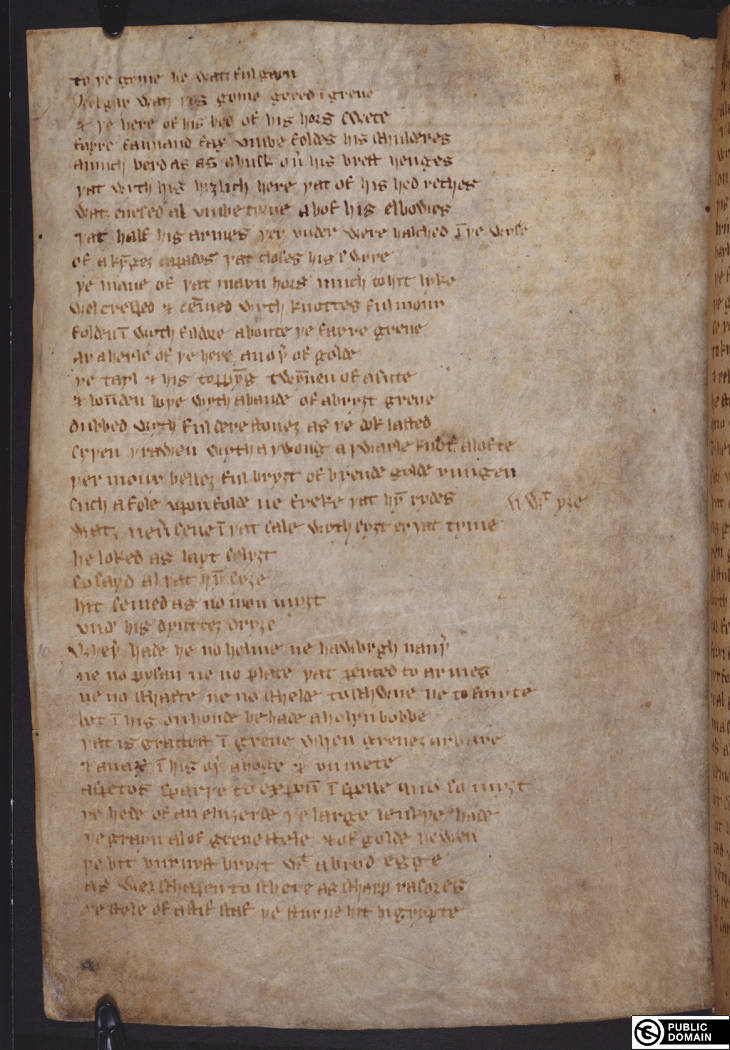 to þe gome he watz ful gayn
Wel gay watz þis gome gered ī grene
& þe here of his hed of his hors swete
fayre fannand fax vmbe foldes his schulderes
a much berd as a busk ouꝰ his brest henges
þat wyth his hiȝlich here þat of his hed reches
watz euesed al vmbe torne abof his elbowes
þat half his armes þer vnder were halched ī þe wyse
of a kyngez capados þat closes his swyre
þe mane of þat mayn hors much to hit lyke
wel cresped & cēmed wyth knottes ful mony
folden ī wyth fildore aboute þe fayre grene
ay a herle of þe here an oþꝰ of golde
þe tayl & his toppyng twynnen of a sute
& boūden boþe wyth a bande of a bryȝt grene
dubbed wyth ful dere stonez as þe dok lasted
syþen þrawen wyth a þwong a þwarle knot alofte
þer mony bellez ful bryȝt of brende golde rungen
such a fole vpon folde ne freke þat hȳ rydes
watz neuꝰ sene ī þat sale wyth syȝt er þat tyme wᵗ yȝe
he loked as layt so lyȝt
so sayd al þat hȳ syȝe
hit semed as no mon myȝt
vndꝰ his dynttez dryȝe
Wheþꝰ hade he no helme ne hawbrgh nauþꝰ
ne no pysan ne no plate þat pented to armes
ne no schafte ne no schelde to schwue ne to smyte
bot ī his on honde he hade a holyn bobbe
þat is grattest ī grene when greuez ar bare
& an ax ī his oþꝰ a hoge & vnmete
a spetos sparþe to expoūn ī spelle quo so myȝt
þe hede of an elnȝerde þe large lenkþe hade
þe grayn al of grene stele & of golde hewen
þe bit burnyst bryȝt wᵗ a brod egge
as wel schapen to schere as scharp rasores
þe stele of a stif staf þe sturne hit bi grypte
PUBLIC DOMAIN